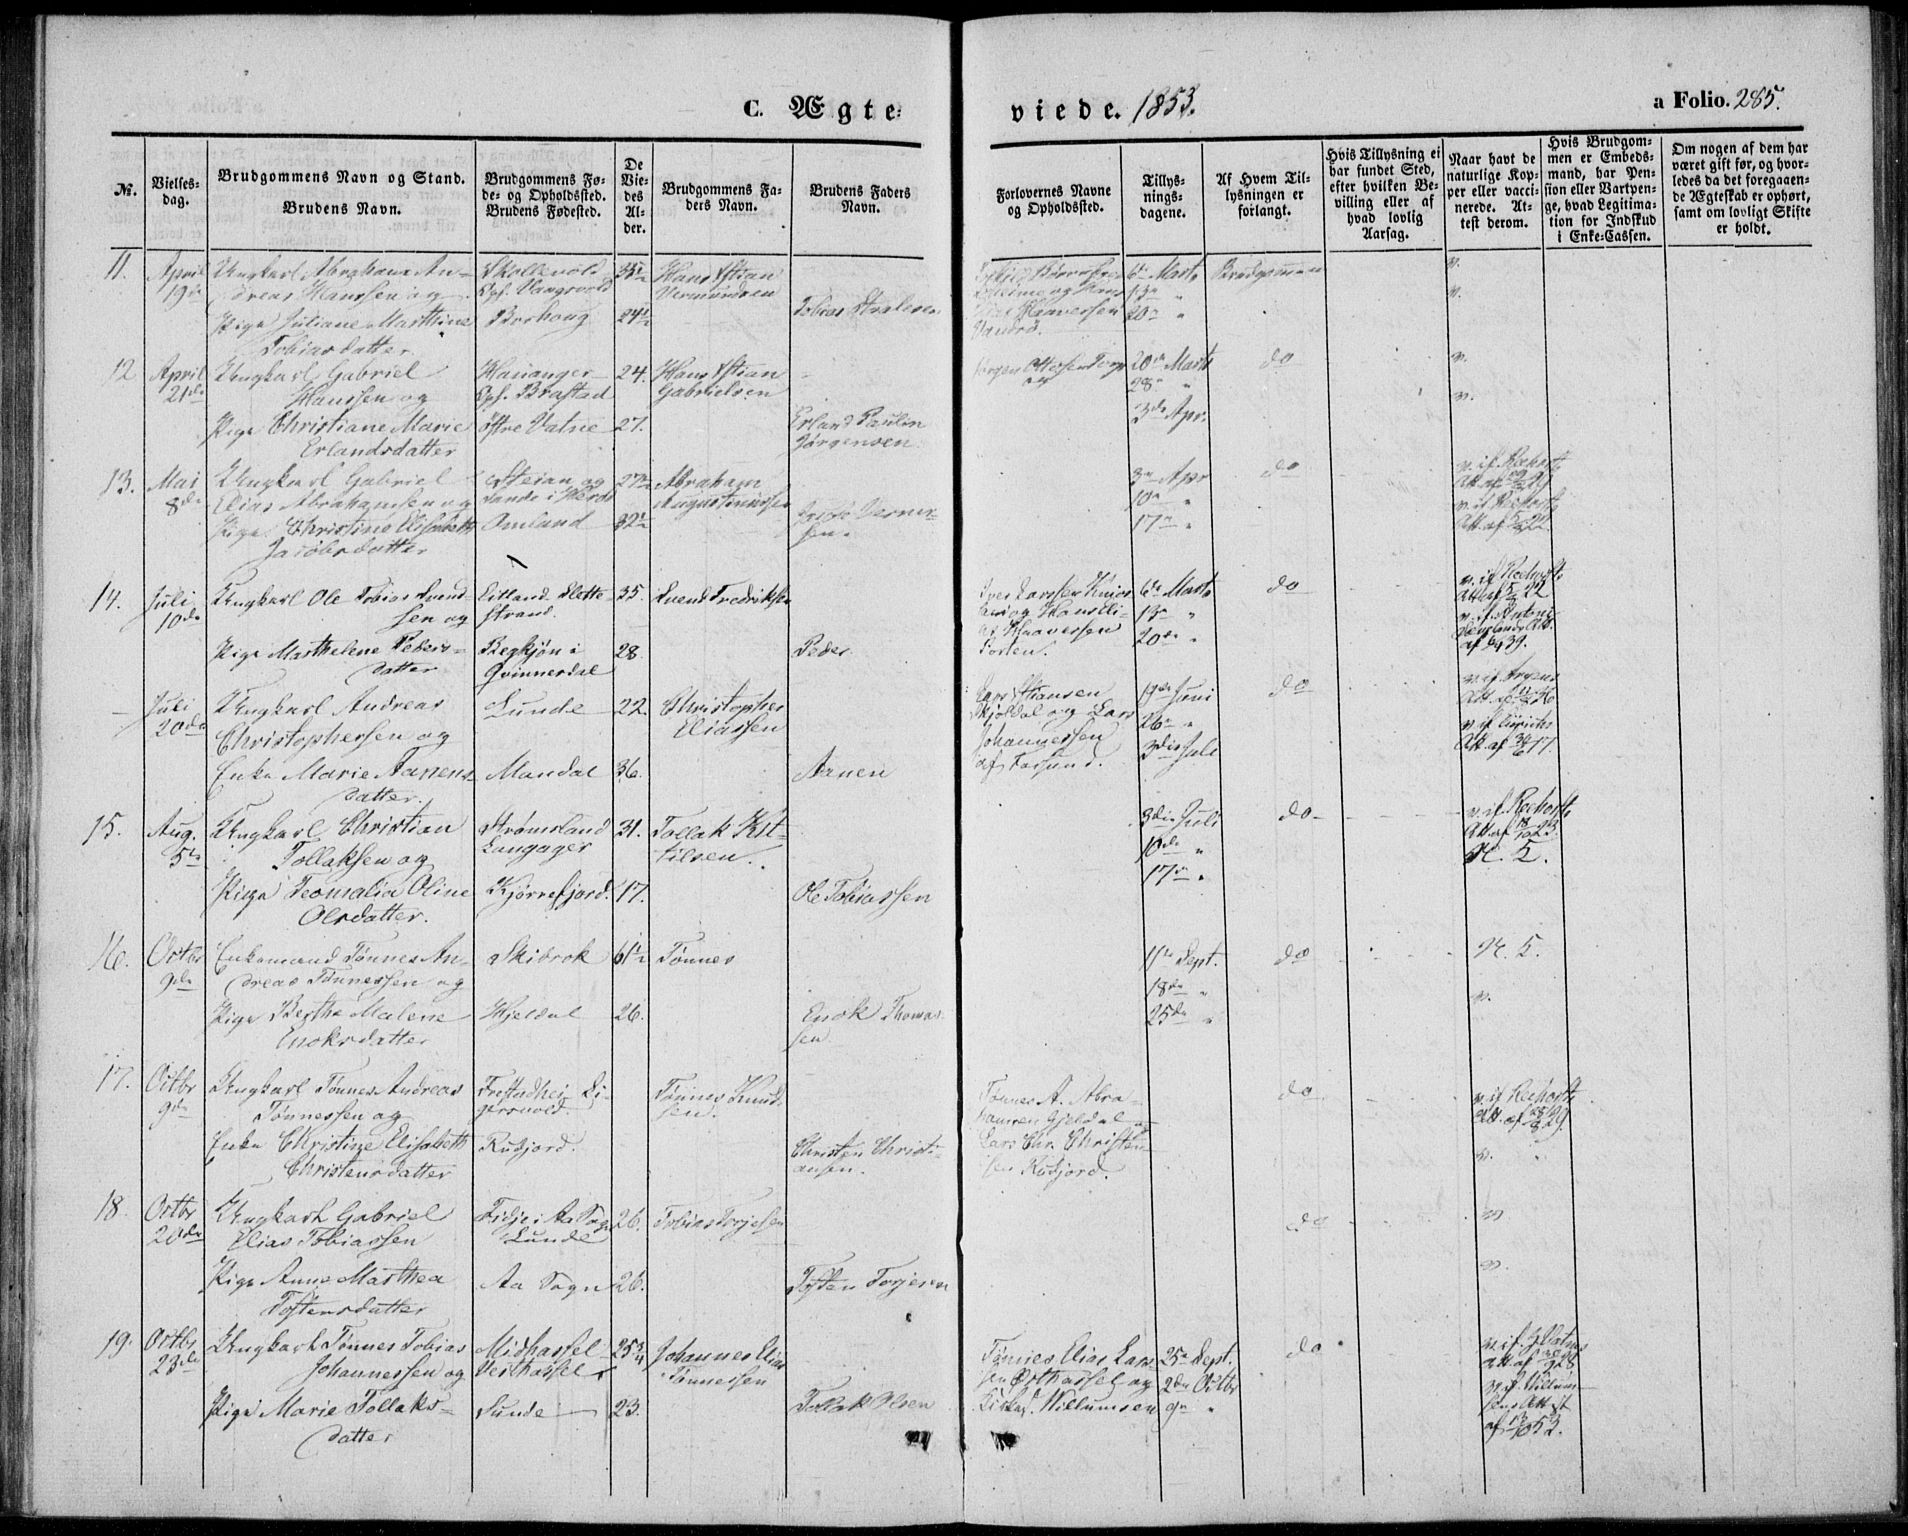 C. Ægte-
viede. 1853.
a Folio. 285.
No.
Vielses-
dag.
Brudgommens Navn og Stand.
Brudens Navn.
Brudgommens Fø-
de- og Opholdssted.
Brudens Fødested.
De
Vie-
des
Al-
der.
Brudgommens Fa-
ders Navn.
Brudens Faders
Navn.
Forlovernes Navne
og Opholdssted.
Tillys-
nings-
dagene.
Af Hvem Til-
lysningen er
forlangt.
Hvis Tillysning ei
har fundet Sted,
efter hvilken Be-
villing eller af
hvad lovlig
Aarsag.
Naar havt de
naturlige Kop-
per eller vacci-
nerede. At-
test derom.
Hvis Brudgom-
men er Embeds-
mand, har Pen-
sion eller Vartpen-
ge, hvad Legitima-
tion for Indskud
i Enke-Cassen.
Om nogen af dem har
været gift før, og hvor-
ledes da det foregaaen-
de Ægteskab er ophørt,
samt om lovligt Skifte
er holdt.
11. April 19de
Ungkarl Abraham An-
dreas Hanssen og
Pige Juliane Marthine
Tobiasdatter
24½
6te Marts
13de "
20de "
Brudgommen
v.
v.
12 April 21de
Ungkarl Gabriel
Hanssen og
Pige Christiane Marie
Erlandsdatter
Hananger
Oph. Brastad
Østre Vatne
24.
27.
Gabrielsen
Erland Paulin
Jørgensen.
20de Marts
28de "
3die Apr.
do
v.
v.
13. Mai 8de
Ungkarl Gabriel
Elias Abrahamsen og
Pige Christine Elisabeth
Jacobsdatter
Omland
32½
Abraham
Augustinussen
3die Apr
10de "
17de "
do
14. Juli 10de
Ungkarl Ole Tobias Svend-
sen og
Pige Marthelene Peders-
datter
Eitland Slette-
strand.
Qvinnesdal
35.
28.
Svend Fredriksen
Peder
6te Marts
13de "
20de "
do
Juli 20de
Ungkarl Andreas
Christophersen og
Enke Marie Aanens
datter.
Lunde
Mandal
22.
36.
Christopher
Eliassen
Aanen
Johannessen
af Farsund.
19de Juni
26de "
3die Juli
do
15. Aug. 5te
Ungkarl Christian
Tollaksen og
Pige Teomalia Oline
Olsdatter.
Strømsland
Langager
Kjørrefjord.
31.
17.
Tollak Kit-
tilsen.
Ole Tobiassen
3die Juli
10de "
17de "
do
N. 5.
16. Octbr 9de
Enkemand Tønnes An-
dreas Tønnessen og
Pige Berthe Malene
Enoksdatter
Skibrok
Hjeldal
61½
26.
Tønnes
Enok Thomas-
sen
11te Sept.
18de "
25de "
do
N. 5.
v.
17. Octbr 9de
Ungkarl Tønnes Andreas
Tønnessen og
Enke Christine Elisabeth
Christensdatter
Rudjord.
Tønnes Knud-
sen.
Christen Christi-
ansen.
Tønnes A. Abra-
hamsen Gjeldal og
Lars Chr. Christen-
sen Rudjord.
do
v.
18. Octbr 20de
Ungkarl Gabriel
Elias Tobiassen
Pige Anne Marthea
Tostensdatter
Fidje i Aa Sogn
Lunde
Aa Sogn
26.
26.
Tobias Torjesen
Tosten Torjesen
do
v.
v.
19. Octbr 23de
Ungkarl Tønnes Tobias
Johannessen og
Pige Marie Tollaks-
datter
Midhassel
Vesthassel
Lunde
25¾
23.
Johannes Elias
Tønnessen
Tollak Olsen
Tønnes Elias Lars-
sen Østhassel og
Willumsen
25de Sept.
2den Octbr
9de "
do